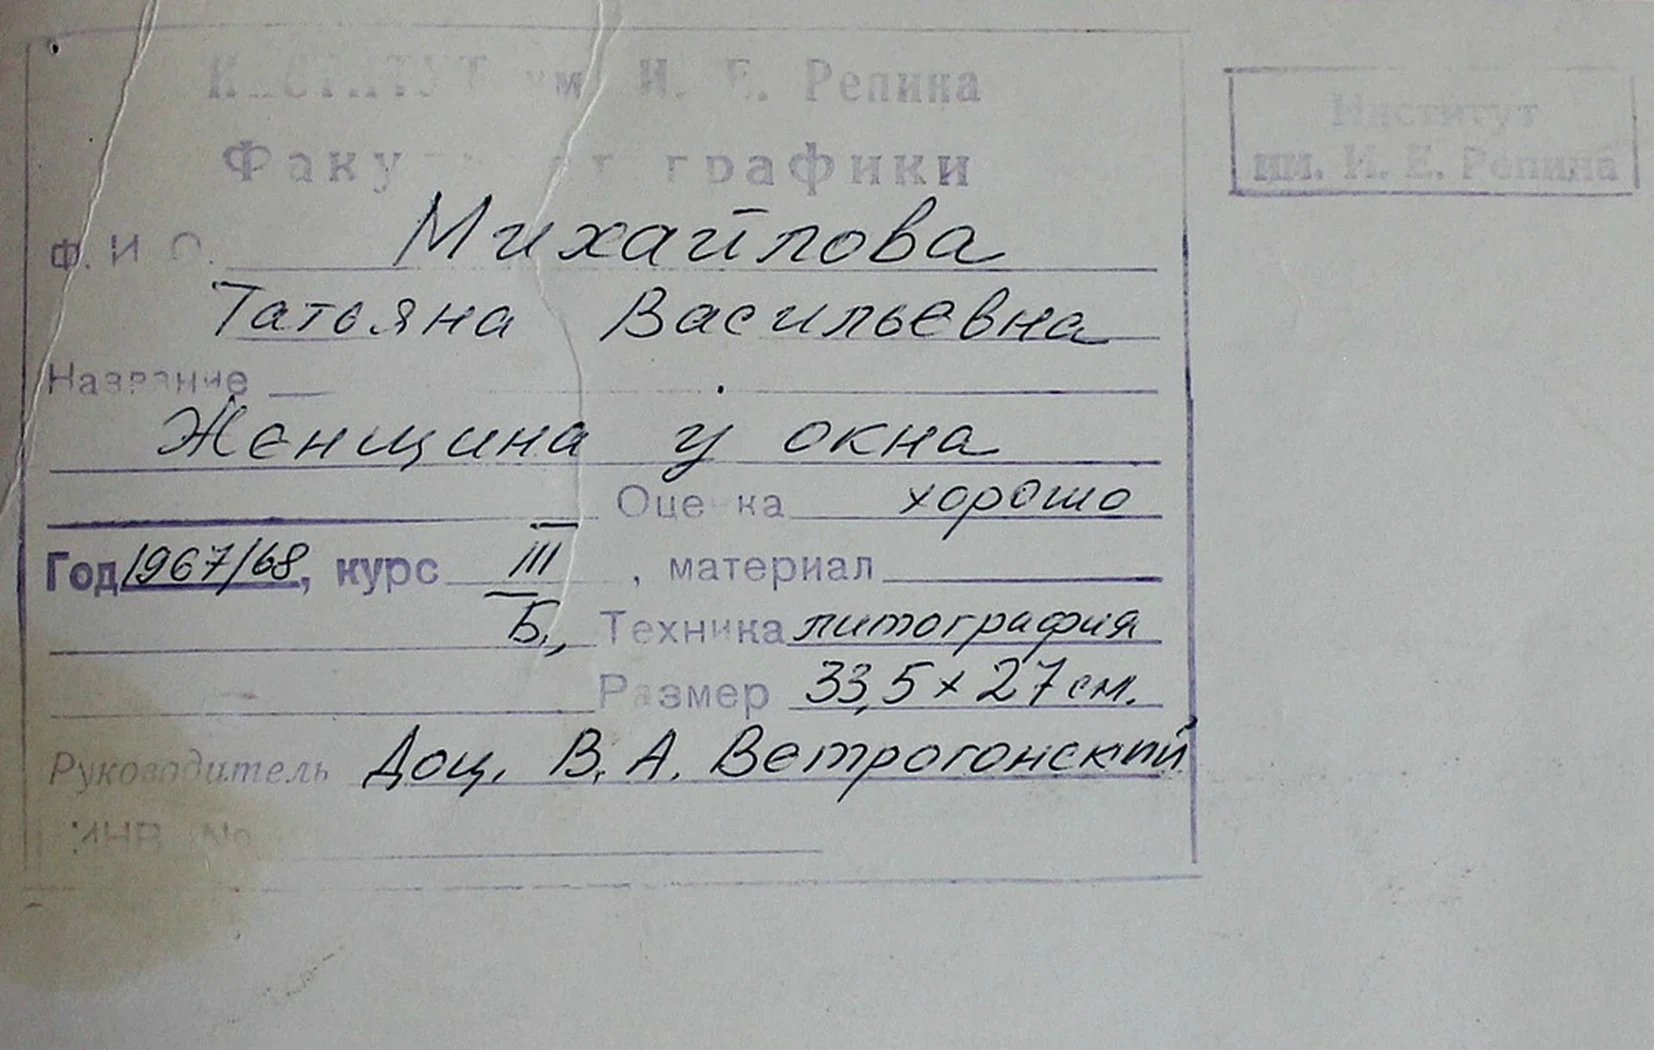 ИНСТИТУТ им. И. Е. Репина
Факультет графики
Ф. И. О. Михайлова
Татьяна Васильевна
Название
Женщина у окна
Оценка хорошо
Год 1967/68, курс III, материал
Б., Техника литография
Размер 33,5 x 27 см.
Руководитель Доц. В. А. Ветрогонский
ИНВ №
Институт
им. И. Е. Репина